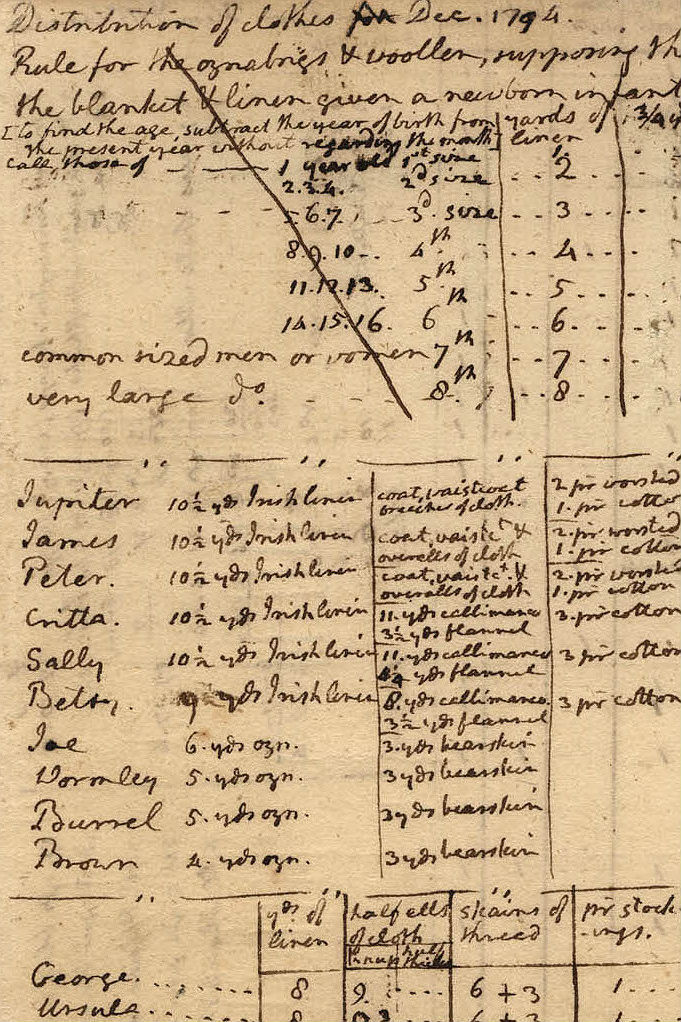 Distribution of clothes for Dec. 1794.
Rule for the oznabrigs & woollen, supposing th
the blanket & linen given a newborn infant
[to find the age, subtract the year of birth from yards of 3/4 y
the present year without regarding the month] linen
call, those of 1 year old 1st size 1
2.3.4. 2d size 2
5.6.7. 3d. size 3
8.9.10 4th 4
11.12.13. 5th 5
14.15.16 6th 6
common sized men or women 7th 7
very large do. 8th 8
Jupiter 10½ yds Irish linen coat, waistcoat breeches of cloth. 2. pr worsted 1. pr cotton
James 10½ yds Irish linen coat, waistct & overalls of cloth 2. pr. worsted 1. pr cotton
Peter. 10½ yds Irish linen coat, waistct. & overalls of cloth 2 pr worsted 1. pr cotton
Critta. 10½ yds Irish linen 11. yds callimanco 3½ yds flannel 3. pr cotton
Sally 10½ yds Irish linen 11. yds callimanco yds flannel 3 pr cotton
Betsy. yds Irish linen 8. yds callimanco. 3½ yds flannel 3 pr cotton
Joe 6. yds ozn. 3. yds bearskin
Wormley 5. yds ozn. 3 yds bearskin
Burrel 5. yds ozn. 3 yds bearskin
Brown 4. yds ozn. 3 yds bearskin
yds of linen half ells of cloth skains of thread pr stock-ings.
George 8 9. 6 + 3 1
Ursula 8 6 + 3 1